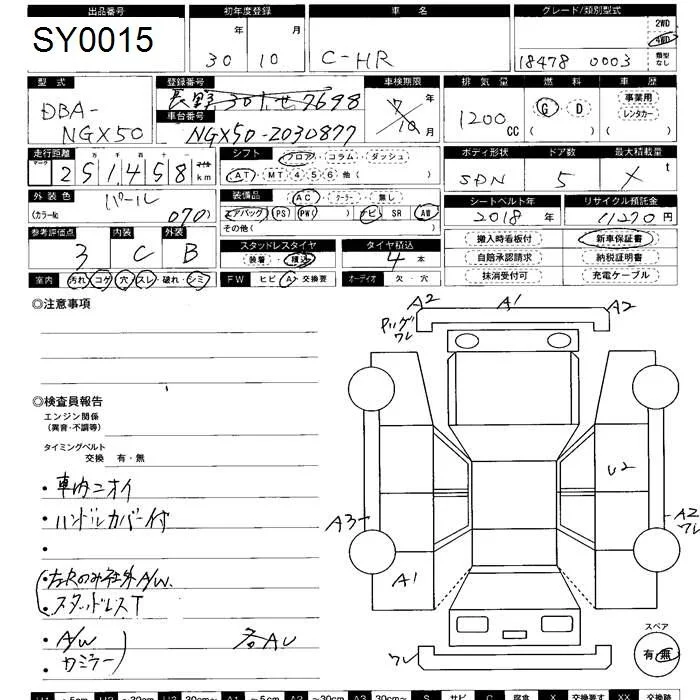 出品番号 初年度登録 車名 グレード/類別型式
SY0015 30年 10月 C-HR 18478 0003
2WD 4WD 類型なし
型式 登録番号 車検期限 排気量 燃料 車歴
DBA-NGX50 長野301せ7698 7年10月 1200CC G・D 事業用 レンタカー
車台番号
NGX50-2030877
走行距離 シフト フロア・コラム・ダッシュ ボディ形状 ドア数 最大積載量
251,458km AT・MT 4 5 6 他( ) SDN 5 X t
外装色 装備品 AC・クーラー・無し シートベルト年 リサイクル預託金
パール (カラーNo. 070) エアバッグ PS PW( ) ナビ SR AW 2018年 11270円
その他( )
参考評価点 内装 外装 スタッドレスタイヤ タイヤ積込 搬入時看板付 新車保証書
3 C B 装着・積込 4本 自賠承認請求 納税証明書
抹消受付可 充電ケーブル
室内 汚れ・コゲ・穴・スレ・破れ・シミ FW ヒビ・A・交換要 オーディオ 欠・穴
◎注意事項
A2 A1 A2
Pハゲ
ワレ
◎検査員報告
エンジン関係
(異音・不調等)
タイミングベルト
交換 有・無
・車内ニオイ
U2
・ハンドルカバー付
A3 A2
ワレ
・左Rのみ社外A/W.
A1
・スタッドレスT
・A/W
・カミラー 各AU
ワレ
スペア
有・無